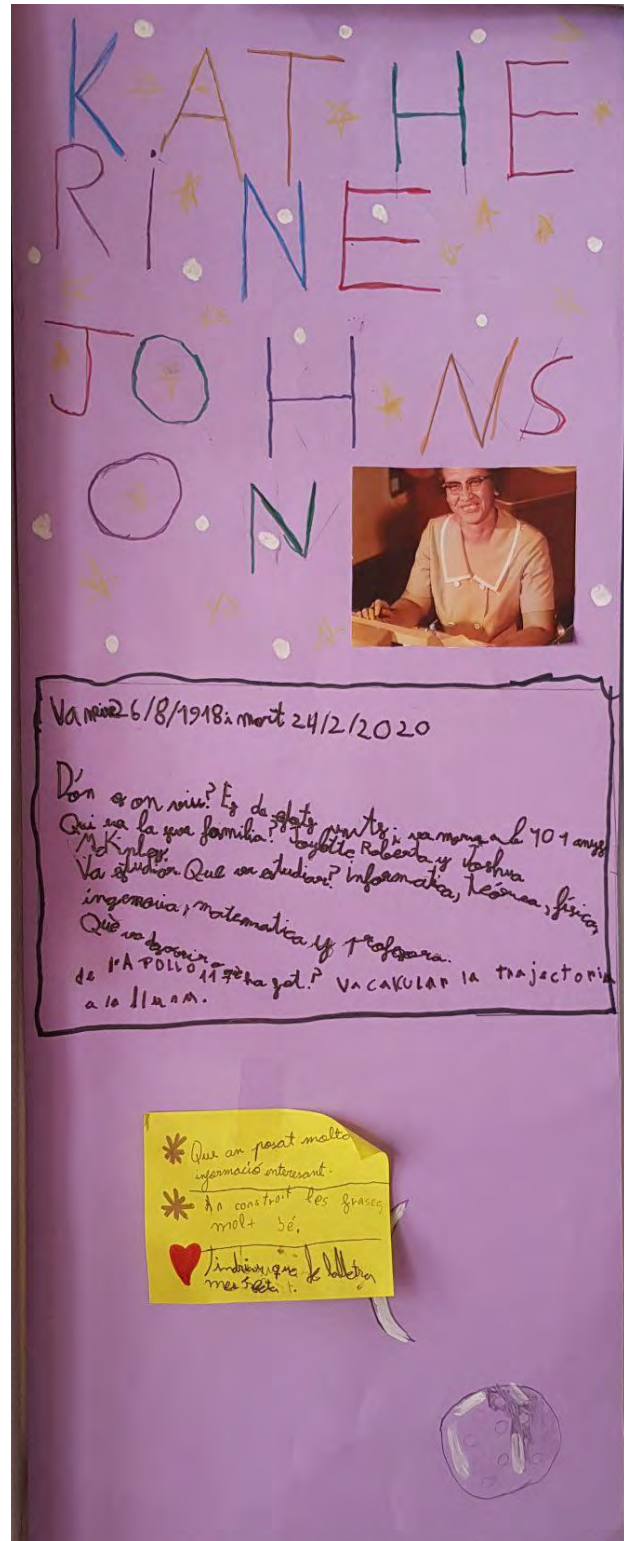 KATHE
RiNE
JOHNS
ON
Va néixe 26/8/1918 i morit 24/2/2020
D'ón es on viu? Es de estats units i va morir a la 101 anys
Qui era la seva familia? Joylette Roberta y Joshua
McKinley
Va estudiar Que va estudiar? Informatica, teórica, física,
ingenioria, matematica y Profesora.
Què va descovrir
de l'APOLLO 11 què ha fet? VA CAKULAR la trajectoria
a la lluna.
Que an posat molta
informació interesant.
An construït les frases
molt bé.
Tindrieu que fer la lletra
mes